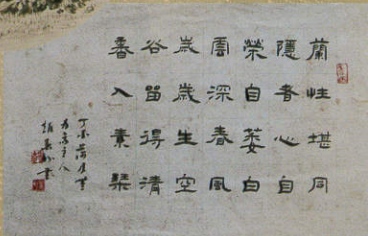 蘭性堪同
隱者心自
榮自萎白
雲深春風
歲歲生空
谷留得清
香入素琴